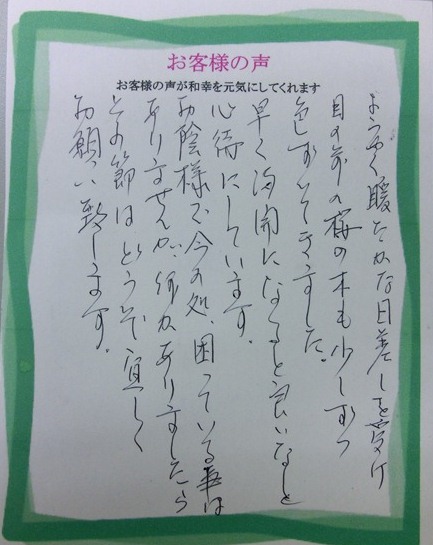 お客様の声
お客様の声が和幸を元気にしてくれます
ようやく暖たかな日差しを受け
目の前の桜の木も少しずつ
色ずいてきました。
早く満開になると良いなと
心待にしています。
お陰様で今の処、困っている事は
ありませんが、何かありましたら
その節はどうぞ宜しく
お願い致します。